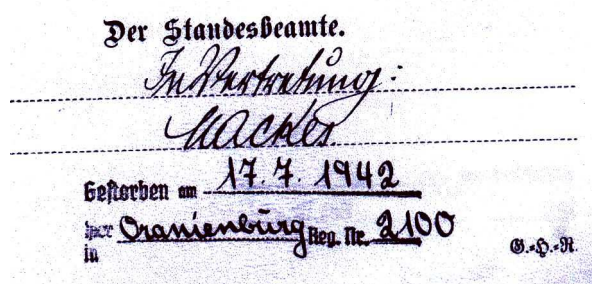 Der Standesbeamte.
In Vertretung:
Gestorben am 17. 7. 1942
Oranienburg Reg. Nr. 2100
in
G.-H.-R.